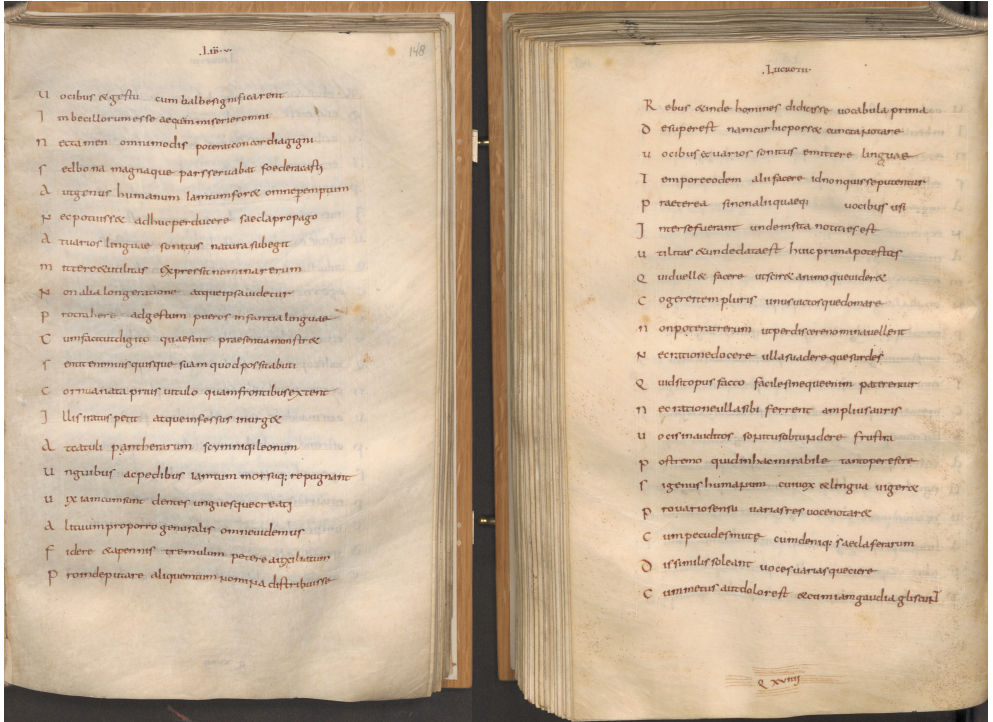 .LIB.V.
148
U ocibus & gestu cum balbe significarent
I mbecillorum esse aequm miserier omni
N ec tamen omnimodis poterat concordia gigni
S ed bona magnaque pars servabat foedera casti
A ut genus humanum iam tum for& omne peremptum
N ec potuiss& adhuc perducere saecla propago
A t varios linguae sonitus natura subegit
M ittere & utilitas expressit nomina rerum
N on alia longe ratione atque ipsa videtur
P rotrahere adgestum pueros infantia linguae
C um facit ut digito quae sint praesentia monstr&
S entit enim uis quisque suam quod possit abuti
C ornua nata prius vitulo quam frontibus extent
I llis iratus petit atque infessus inurg&
A t catuli pantherarum scymniqi leonum
U nguibus ac pedibus iam tum morsuq; repugnant
U ix iam cum sunt dentes unguesque creati
A lituum proporro genus alis omne videmus
F idere & apennis tremulum petere auxiliatum
P roinde putare aliquem tum nomina distribuisse
.LUCRETII.
R ebus & inde homines didicisse vocabula prima
D esuperest nam cur hic poss& cuncta notare
U ocibus et varios sonitus emittere linguae
T empore eodem alii facere id non quisse putentur
P raeterea si non alii quaeq; vocibus usi
I nter se fuerant unde insita notities est
U tilitas & unde data est huic prima potestas
Q uid vell& facere ut scir& animoque vider&
C ogere item pluris unus victosque domare
N on poterat rerum ut perdiscere nomina vellent
N ec ratione docere ulla suadereque surdes
Q uid sit opus facto faciles neque enim paterentur
N ec ratione ulla sibi ferrent amplius auris
U ocis inauditos sonitus obtundere frustra
P ostremo quid in hac mirabile tantopere est re
S i genus humanum cui vox & lingua viger&
P ro vario sensu varias res voce notar&
C um pecudes mute cum deniq; saecla ferarum
D issimilis soleant voces variasque ciere
C um metus aut dolor est & cum iam gaudia gliscunt
Q XVIIII